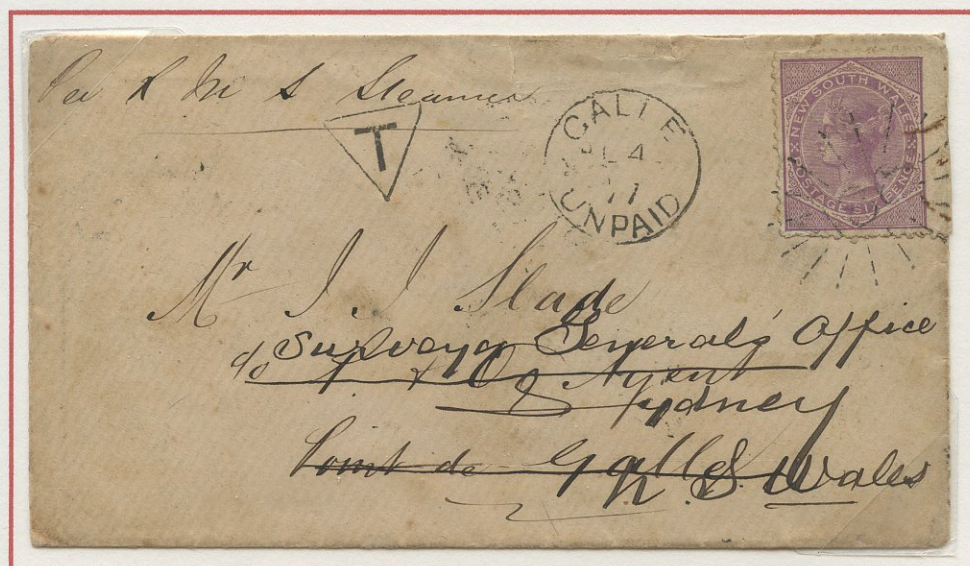 Per R M S Steamer
T
GALLE
JL 4
77
UNPAID
NEW SOUTH WALES
POSTAGE SIXPENCE
Mr J. J Slade
Surveyor General's Office
c/o P & O Co Agent
Sydney
Point de Galle
N. S. Wales